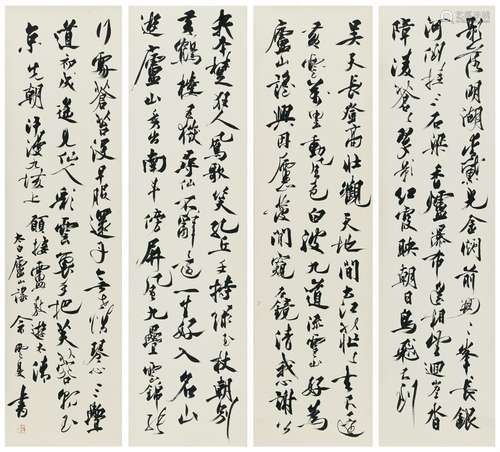 我本楚狂人鳳歌笑孔丘手持綠玉杖朝別
黃鶴樓五嶽尋仙不辭遠一生好入名山
遊廬山秀出南斗傍屏風九疊雲錦張
影落明湖青黛光金闕前開二峯長銀
河倒挂三石梁香爐瀑布遙相望迴崖沓
嶂凌蒼蒼翠影紅霞映朝日鳥飛不到
吳天長登高壯觀天地間大江茫茫去不還
黃雲萬里動風色白波九道流雪山好為
廬山謠興因廬山發閒窺石鏡清我心謝公
行處蒼苔沒早服還丹無世情琴心三疊
道初成遙見仙人彩雲裏手把芙蓉朝玉
京先期汗漫九垓上願接盧敖遊太清
太白廬山謠余雪曼書